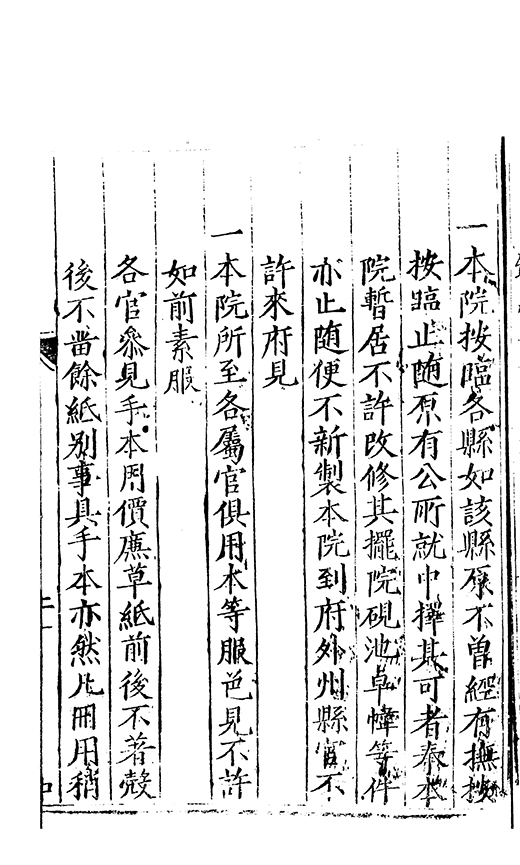 一本院按臨各縣如該縣原不曾經有撫按
按臨止随原有公所就中擇其可者奉本
院暫居不許改修其擺院硯池卓幃等件
亦止随便不新製本院到府外州縣官不
許來府見
一本院所至各屬官俱用本等服色見不許
如前素服
各官叅見手本用價廉草紙前後不著殼
後不畱餘紙别事具手本亦然凡冊用稍